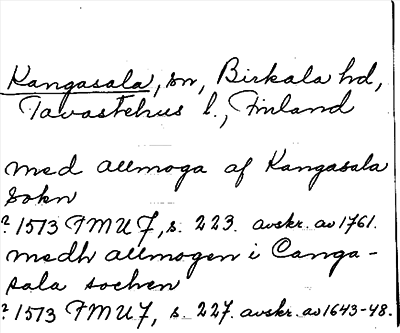 Kangasala, sn, Birkala hd,
Tavastehus l., Finland
med allmoga af Kangasala
sokn
? 1513 FMU 7, s. 223. avskr. av 1761.
medh allmogen i Canga-
sala sochen
? 1513 FMU 7, s. 227. avskr. av 1643-48.